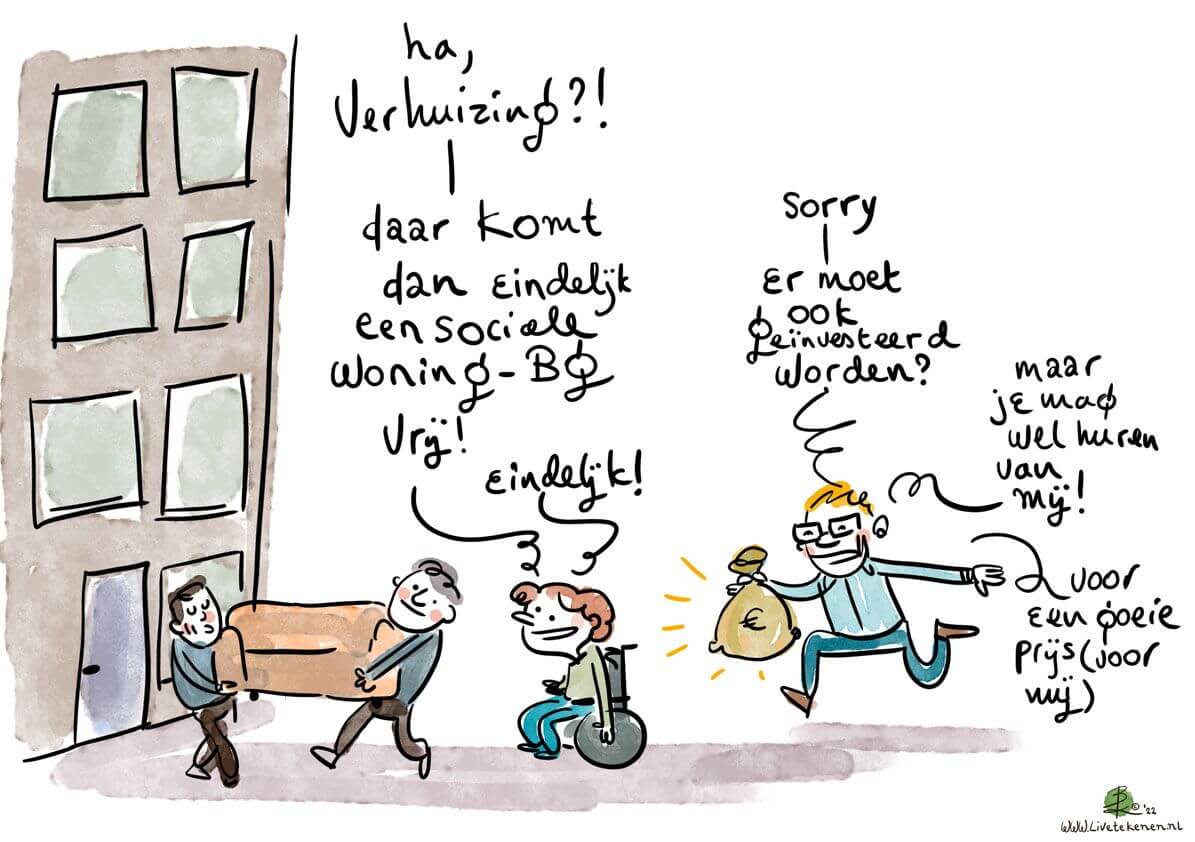 ha,
Verhuizing?!
daar komt
dan eindelijk
een sociale
woning-BG
vrij!
eindelijk!
sorry
Er moet
ook
geïnvesteerd
worden?
maar
je mag
wel huren
van
mij!
voor
een goeie
prijs (voor
mij)
© '22
www.Livetekenen.nl